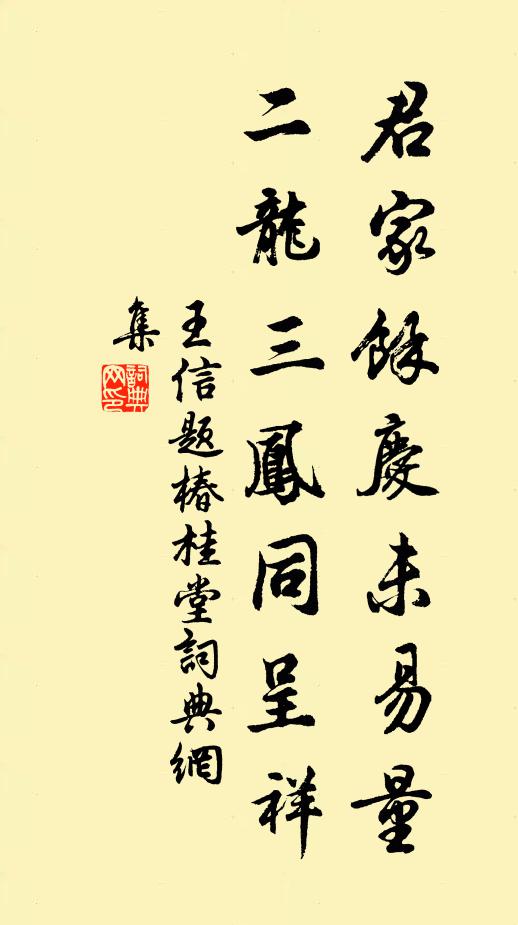 君家餘慶未易量
二龍三鳳同呈祥
王信題椿桂堂詞典網
集
詞典
网印